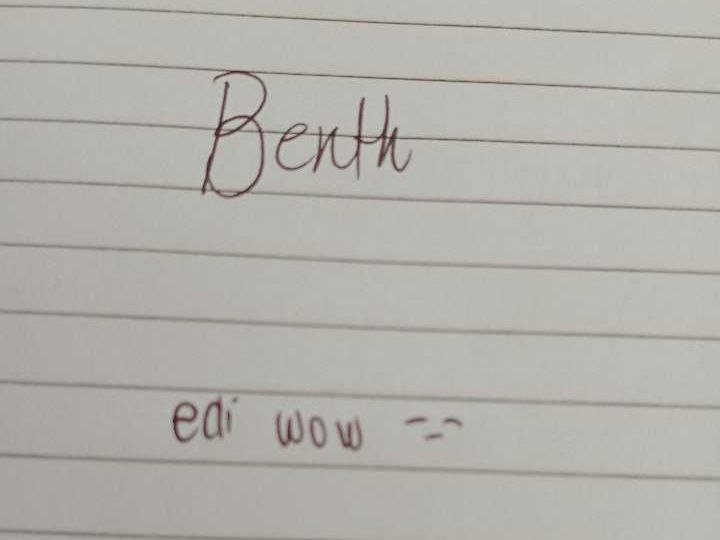 Benth
edi wow -_-